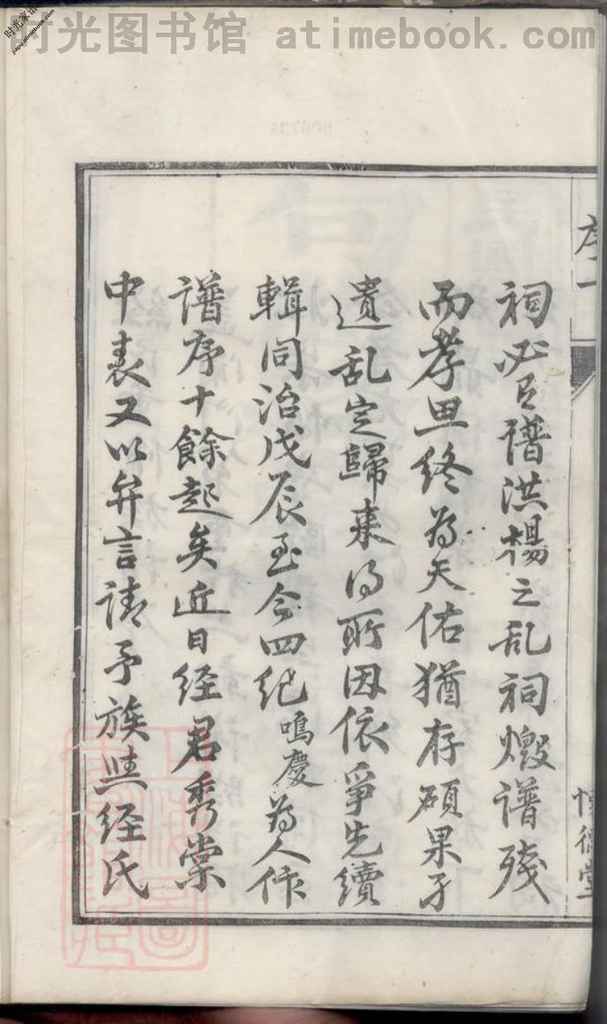 时光图书馆 atimebook.com
序一
祠必有譜洪楊之乱祠燬譜殘
而孝思終為天佑猶存碩果孑
遺乱定歸来得所因依爭先續
輯同治戊辰至今四纪鳴慶為人作
譜序十餘起矣近日经君秀棠
中表又以弁言請予族與经氏